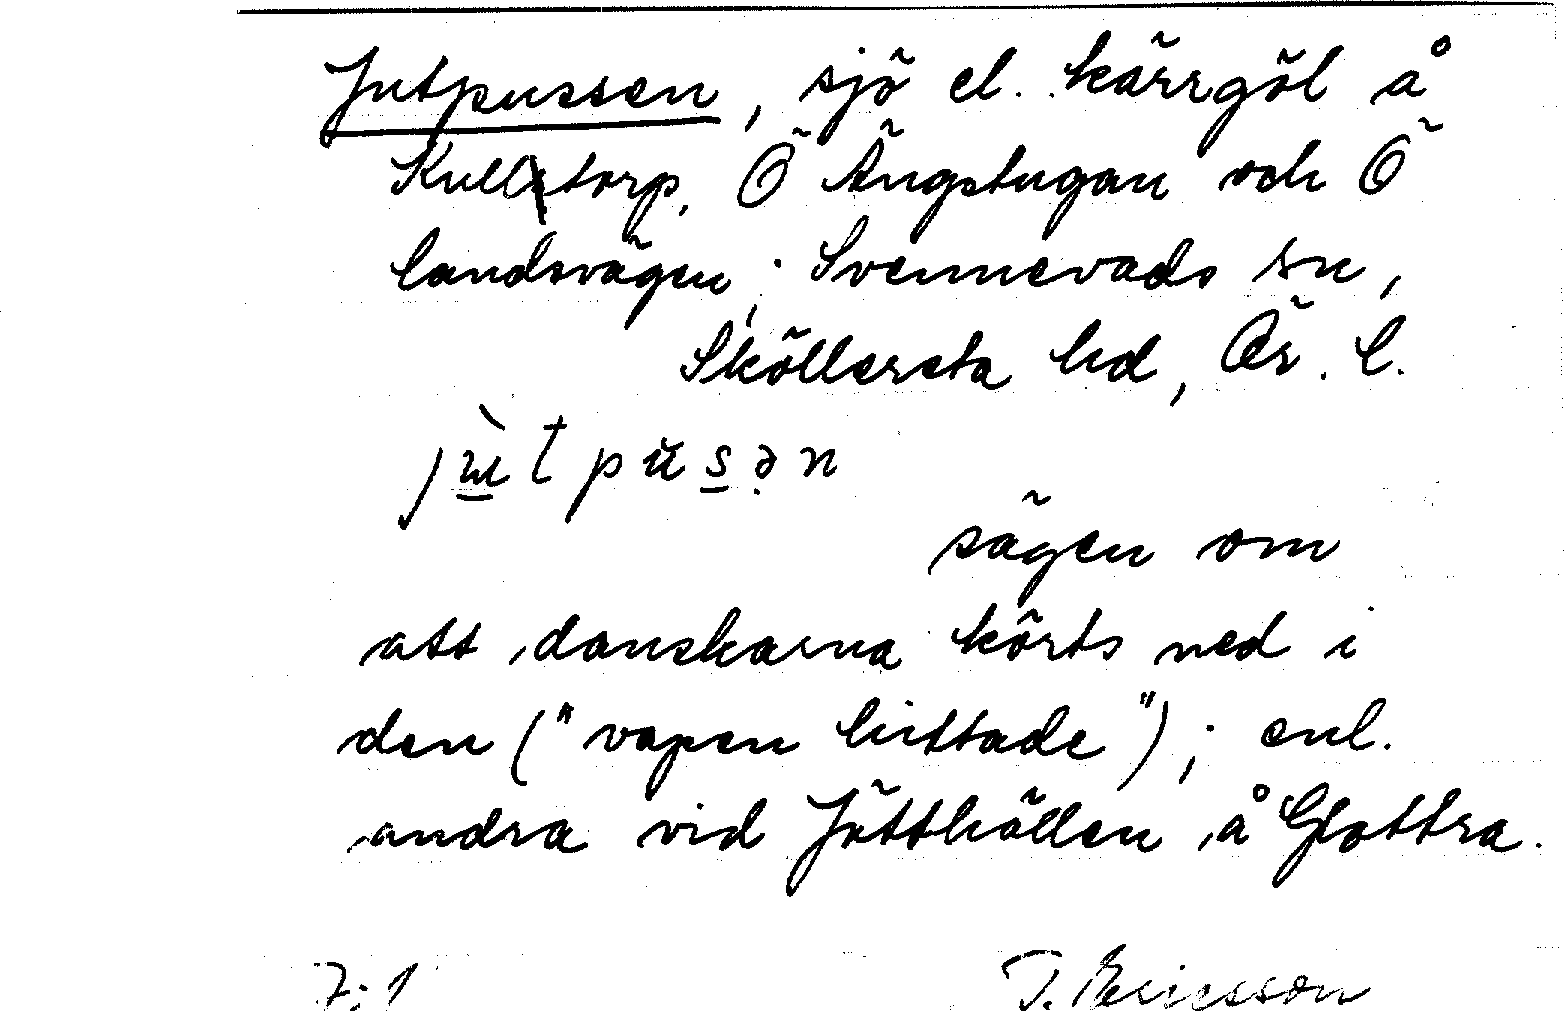 Jutpussen, sjö el. kärrgöl å
Kulltorp, Ö Ängstugan och Ö
landsvägen; Svennevads sn,
Sköllersta hd, Ör. l.
sägen om
att danskarna körts ned i
den ("vapen hittade"); enl.
andra vid Jötthällen å Glottra.
7:1 T. Ericsson